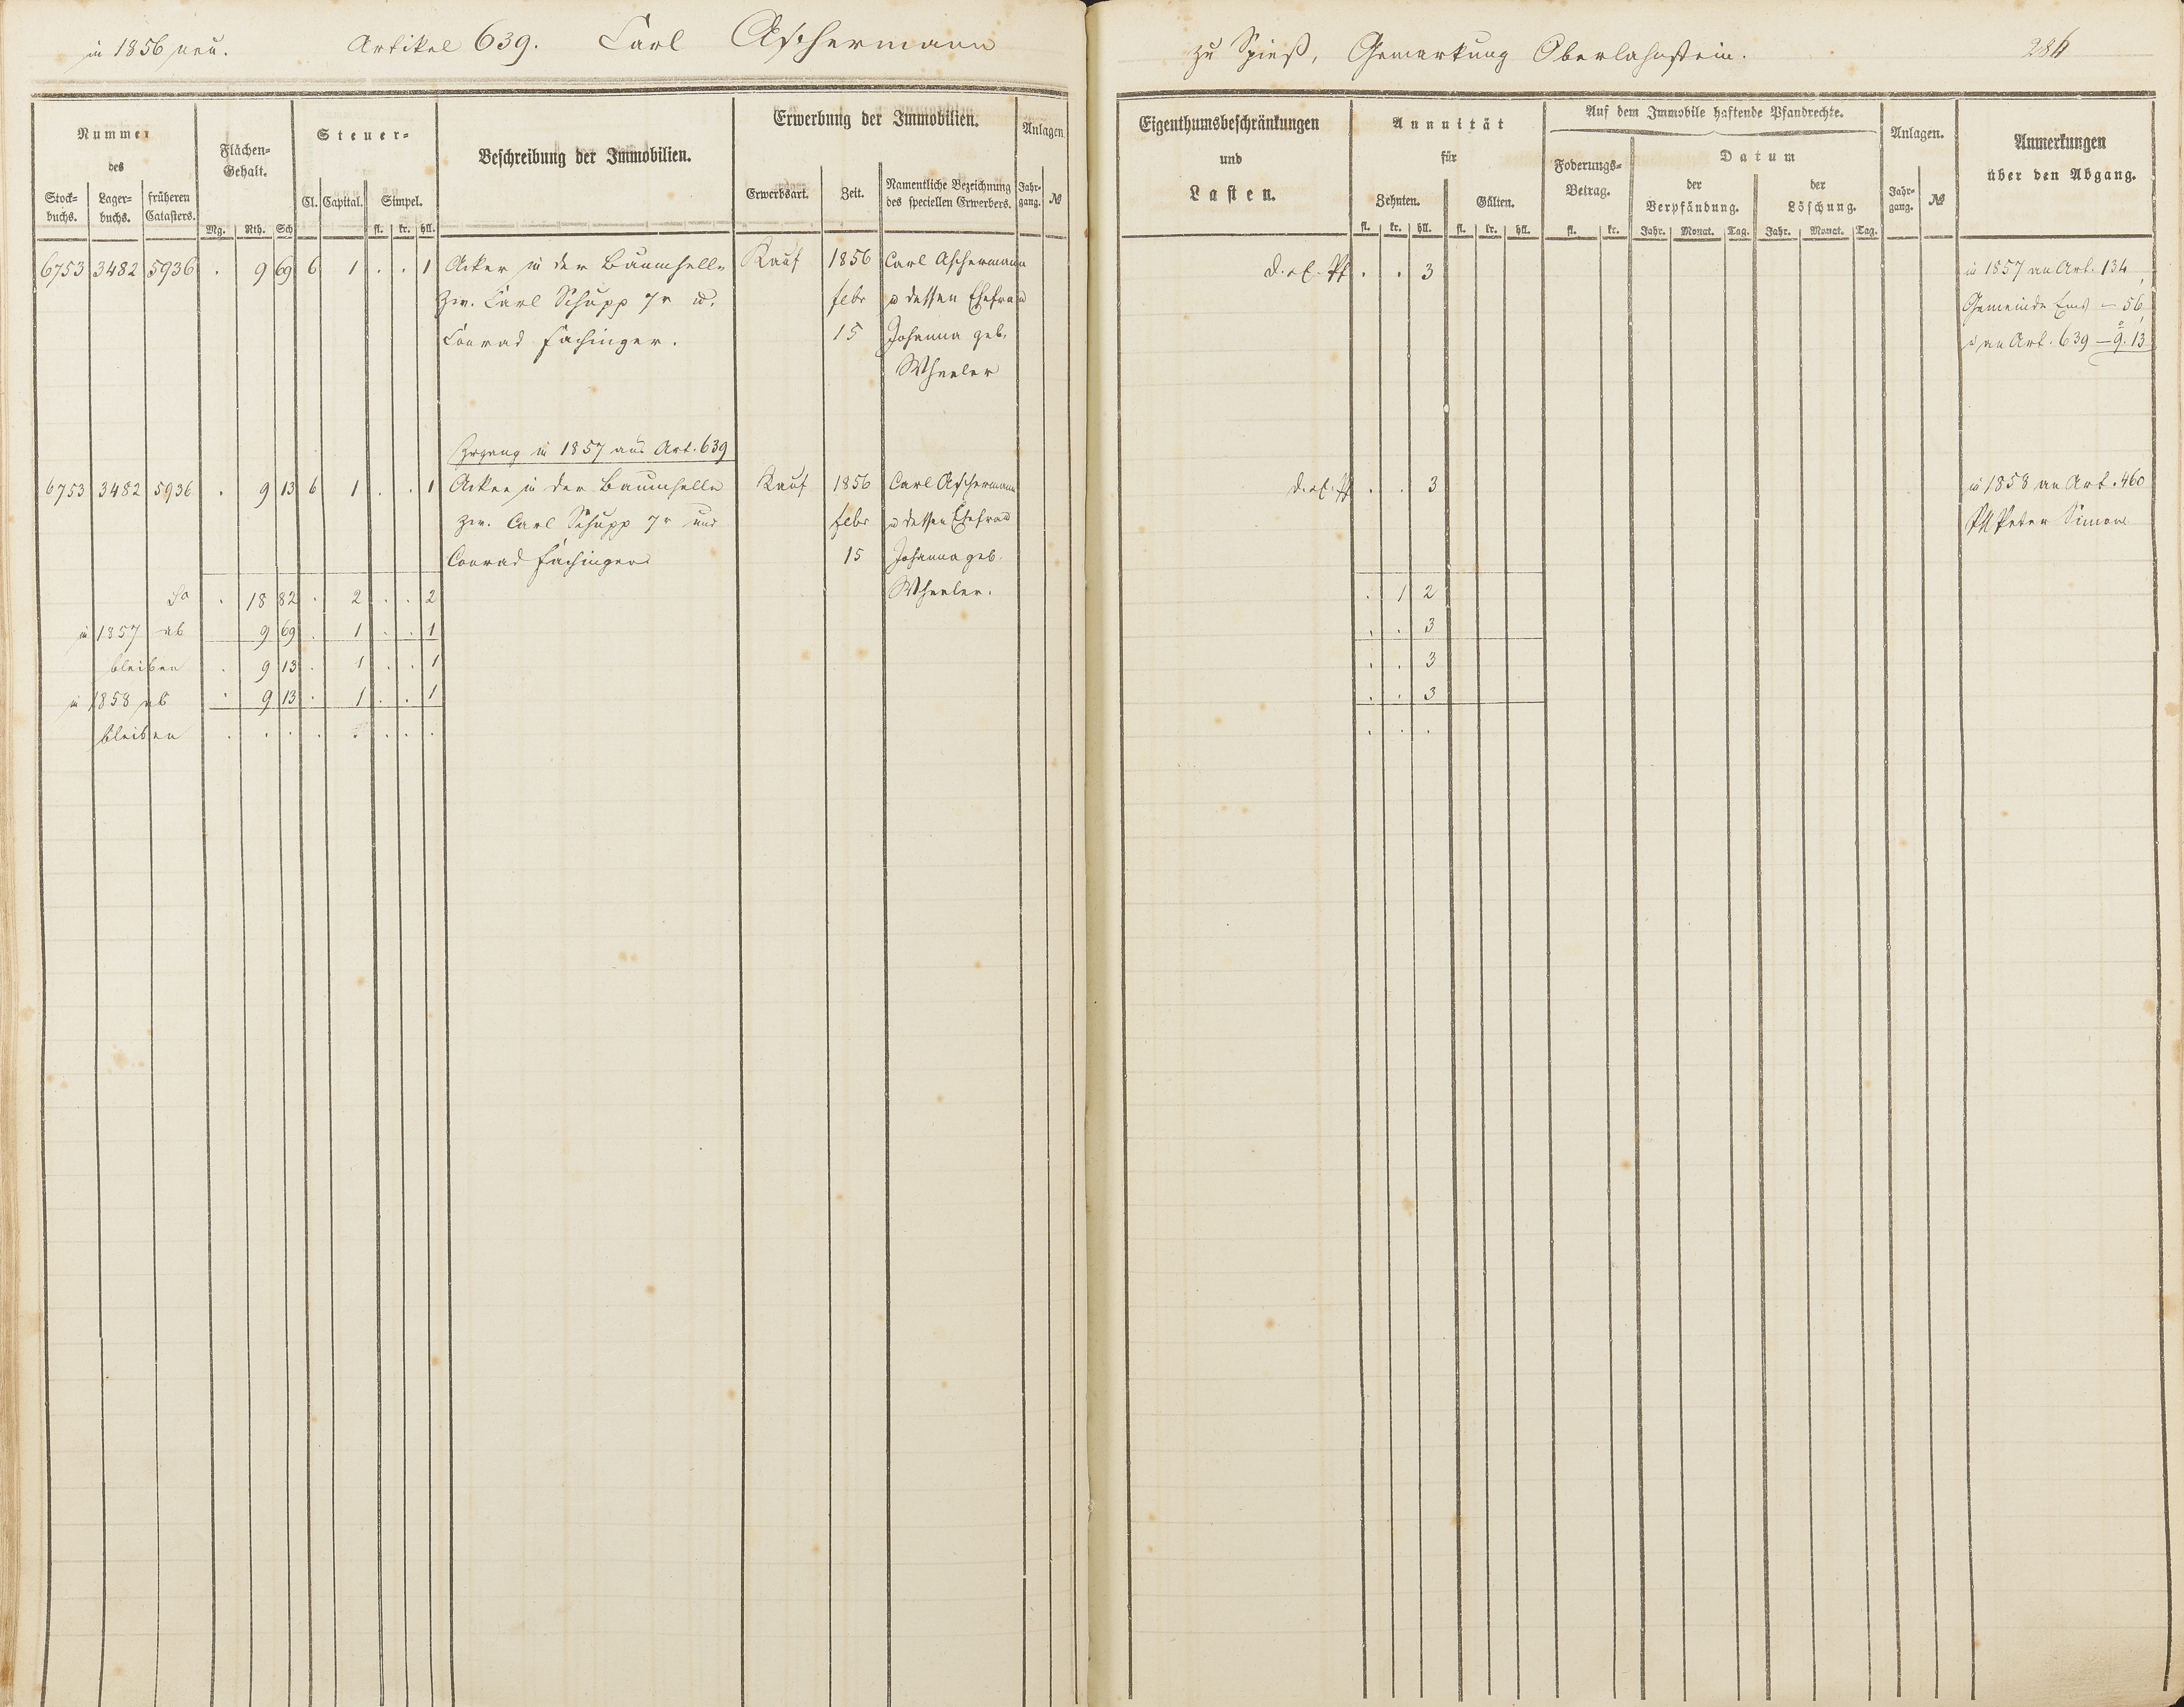 in 1856 neu. Artikel 639. Carl Aschermann
Nummer des
Stock-buchs. Lager-buchs. früheren Catasters.
Flächen-Gehalt.
Mg. Rth. Sch
Steuer-
Cl. Capital. Simpel.
fl. kr. hll.
Beschreibung der Immobilien.
Erwerbung der Immobilien.
Erwerbsart. Zeit. Namentliche Bezeichnung des speciellen Erwerbers.
Anlagen
Jahr-gang. №
6753 3482 5936 . 9 69 6 1 . . 1 Acker in der Baumhelle Kauf 1856 Carl Aschermann
zw. Carl Schupp 7r u. febr u dessen Ehefrau
Conrad Fachinger. 15 Johanna geb.
Wheeler
Zugang in 1857 aus Art. 639
6753 3482 5936 . 9 13 6 1 . . 1 Acker in der Baumhelle Kauf 1856 Carl Aschermann
zw. Carl Schupp 7r und febr u dessen Ehefrau
Conrad Fachinger 15 Johanna geb.
Sa . 18 82 . 2 . . 2 Wheeler.
in 1857 ab 9 69 . 1 . . 1
bleiben . 9 13 . 1 . . 1
in 1858 ab . 9 13 . 1 . . 1
bleiben . . . . . . . .
zu Spieß, Gemarkung Oberlahnstein. 284
Eigenthumsbeschränkungen
und
Lasten.
Annuität
für
Zehnten. Gülten.
fl. kr. hll. fl. kr. hll.
Auf dem Immobile haftende Pfandrechte.
Foderungs-Betrag.
fl. kr.
Datum
der Verpfändung. der Löschung.
Jahr. Monat. Tag. Jahr. Monat. Tag.
Anlagen.
Jahr-gang. №
Anmerkungen
über den Abgang.
. . 3 in 1857 an Art. 134,
Gemeinde Ems — 56,
u an Art. 639 — 9. 13
. . 3 in 1858 an Art. 460
Peter Simon
. 1 2
. . 3
. . 3
. . 3
. . .